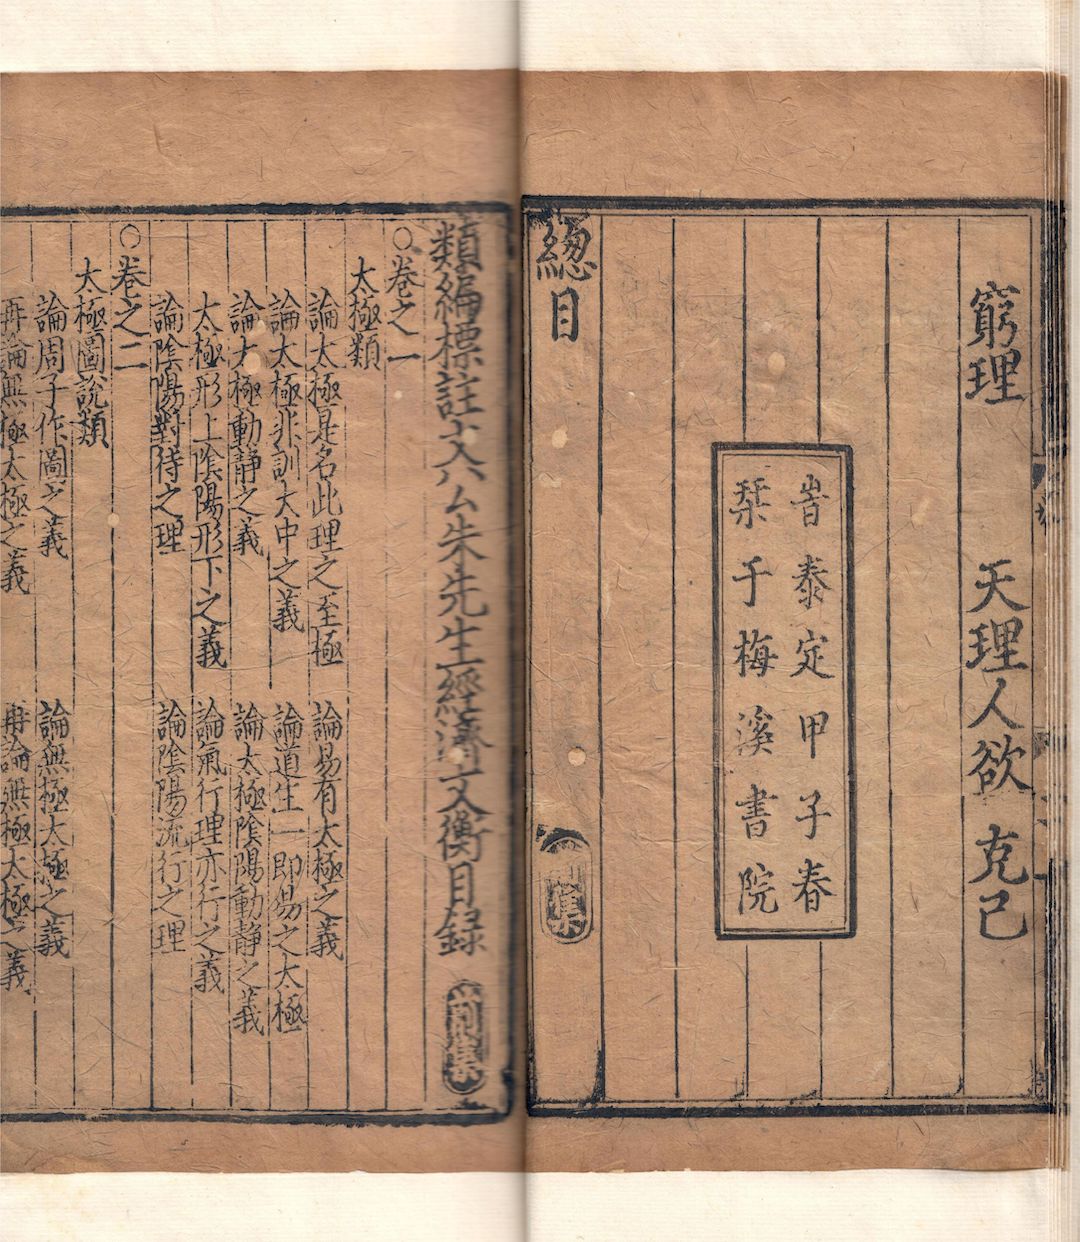 窮理 天理人欲 克己
旹泰定甲子春
栞于梅溪書院
緫目 前集
類編標註文公朱先生經濟文衡目録 前集
○卷之一
太極類
論太極是名此理之至極 論易有太極之義
論太極非訓大中之義 論道生一即易之太極
論太極動静之義 論太極陰陽動静之義
太極形上陰陽形下之義 論氣行理亦行之義
論陰陽對待之理 論陰陽流行之理
○卷之二
太極圖說類
論周子作圖之義 論無極太極之義
再論無極太極之義 再論無極太極之義